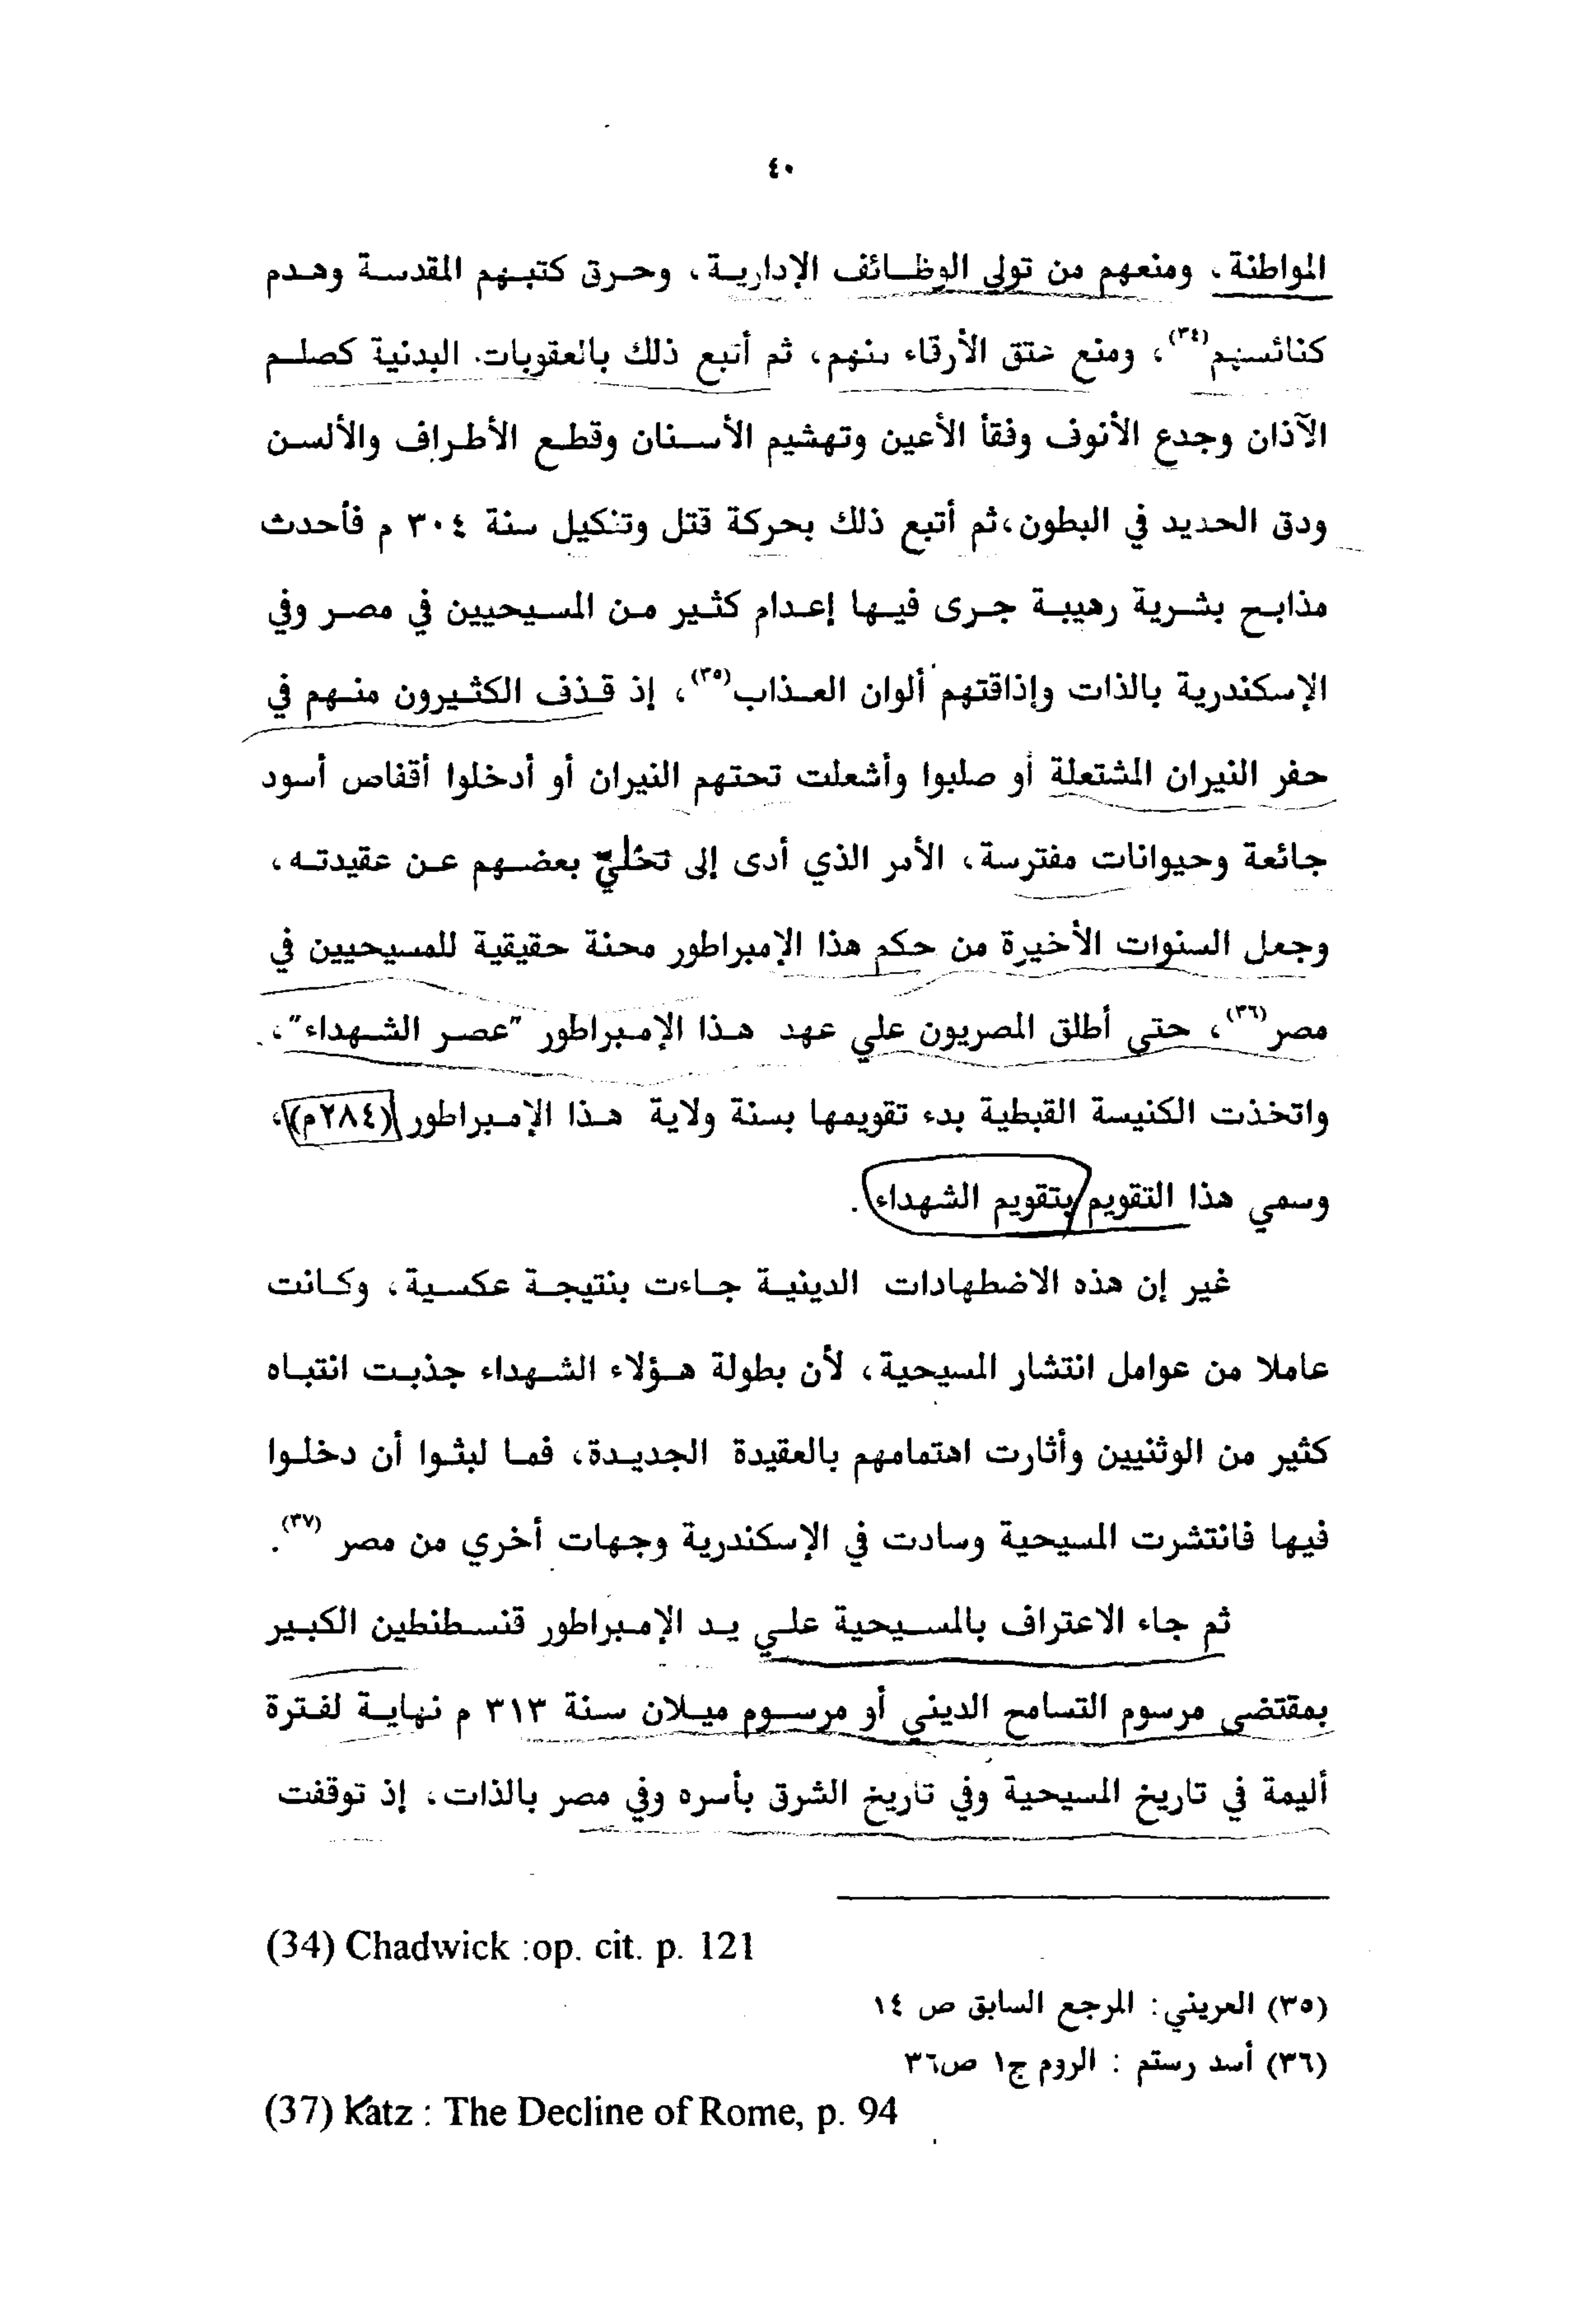 ٤٠
المواطنة، ومنعهم من تولي الوظائف الإدارية، وحرق كتبهم المقدسة وهدم
كنائسهم(٣٤)، ومنع عتق الأرقاء منهم، ثم أتبع ذلك بالعقوبات. البدنية كصلم
الآذان وجدع الأنوف وفقأ الأعين وتهشيم الأسنان وقطع الأطراف والألسن
ودق الحديد في البطون،ثم أتبع ذلك بحركة قتل وتنكيل سنة ٣٠٤ م فأحدث
مذابح بشرية رهيبة جرى فيها إعدام كثير من المسيحيين في مصر وفي
الإسكندرية بالذات وإذاقتهم ألوان العذاب(٣٥)، إذ قذف الكثيرون منهم في
حفر النيران المشتعلة أو صلبوا وأشعلت تحتهم النيران أو أدخلوا أقفاص أسود
جائعة وحيوانات مفترسة، الأمر الذي أدى إلى تخليّ بعضهم عن عقيدته،
وجعل السنوات الأخيرة من حكم هذا الإمبراطور محنة حقيقية للمسيحيين في
مصر(٣٦)، حتى أطلق المصريون علي عهد هذا الإمبراطور "عصر الشهداء"،
واتخذت الكنيسة القبطية بدء تقويمها بسنة ولاية هذا الإمبراطور (٢٨٤م)،
وسمي هذا التقويم بتقويم الشهداء.
غير إن هذه الاضطهادات الدينية جاءت بنتيجة عكسية، وكانت
عاملا من عوامل انتشار المسيحية، لأن بطولة هؤلاء الشهداء جذبت انتباه
كثير من الوثنيين وأثارت اهتمامهم بالعقيدة الجديدة، فما لبثوا أن دخلوا
فيها فانتشرت المسيحية وسادت في الإسكندرية وجهات أخري من مصر (٣٧).
ثم جاء الاعتراف بالمسيحية علي يد الإمبراطور قنسطنطين الكبير
بمقتضى مرسوم التسامح الديني أو مرسوم ميلان سنة ٣١٣ م نهاية لفترة
أليمة في تاريخ المسيحية وفي تاريخ الشرق بأسره وفي مصر بالذات، إذ توقفت
(34) Chadwick :op. cit. p. 121
(٣٥) العريني: المرجع السابق ص ١٤
(٣٦) أسد رستم : الروم ج١ ص٣٦
(37) Katz : The Decline of Rome, p. 94